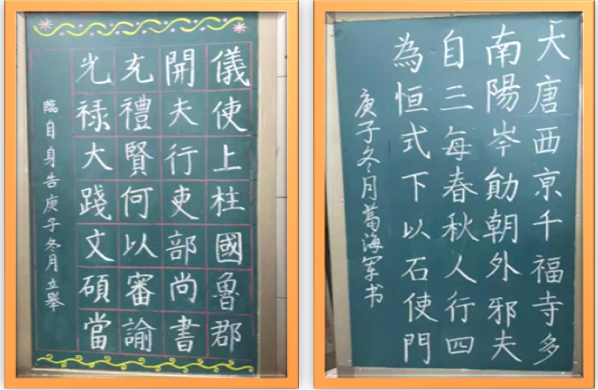 儀使上柱國魯郡
開夫行吏部尚書
充禮賢何以審諭
光禄大踐文碩當
臨自身告庚子冬月立舉
大唐西亰千福寺多
南陽岑勛朝外邪夫
自三每春秋人行四
為恒式下以石使門
庚子冬月葛海军书